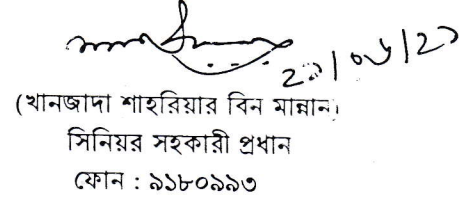 ২১/০৬/২১
(খানজাদা শাহরিয়ার বিন মান্নান)
সিনিয়র সহকারী প্রধান
ফোন : ৯১৮০৯৯৩